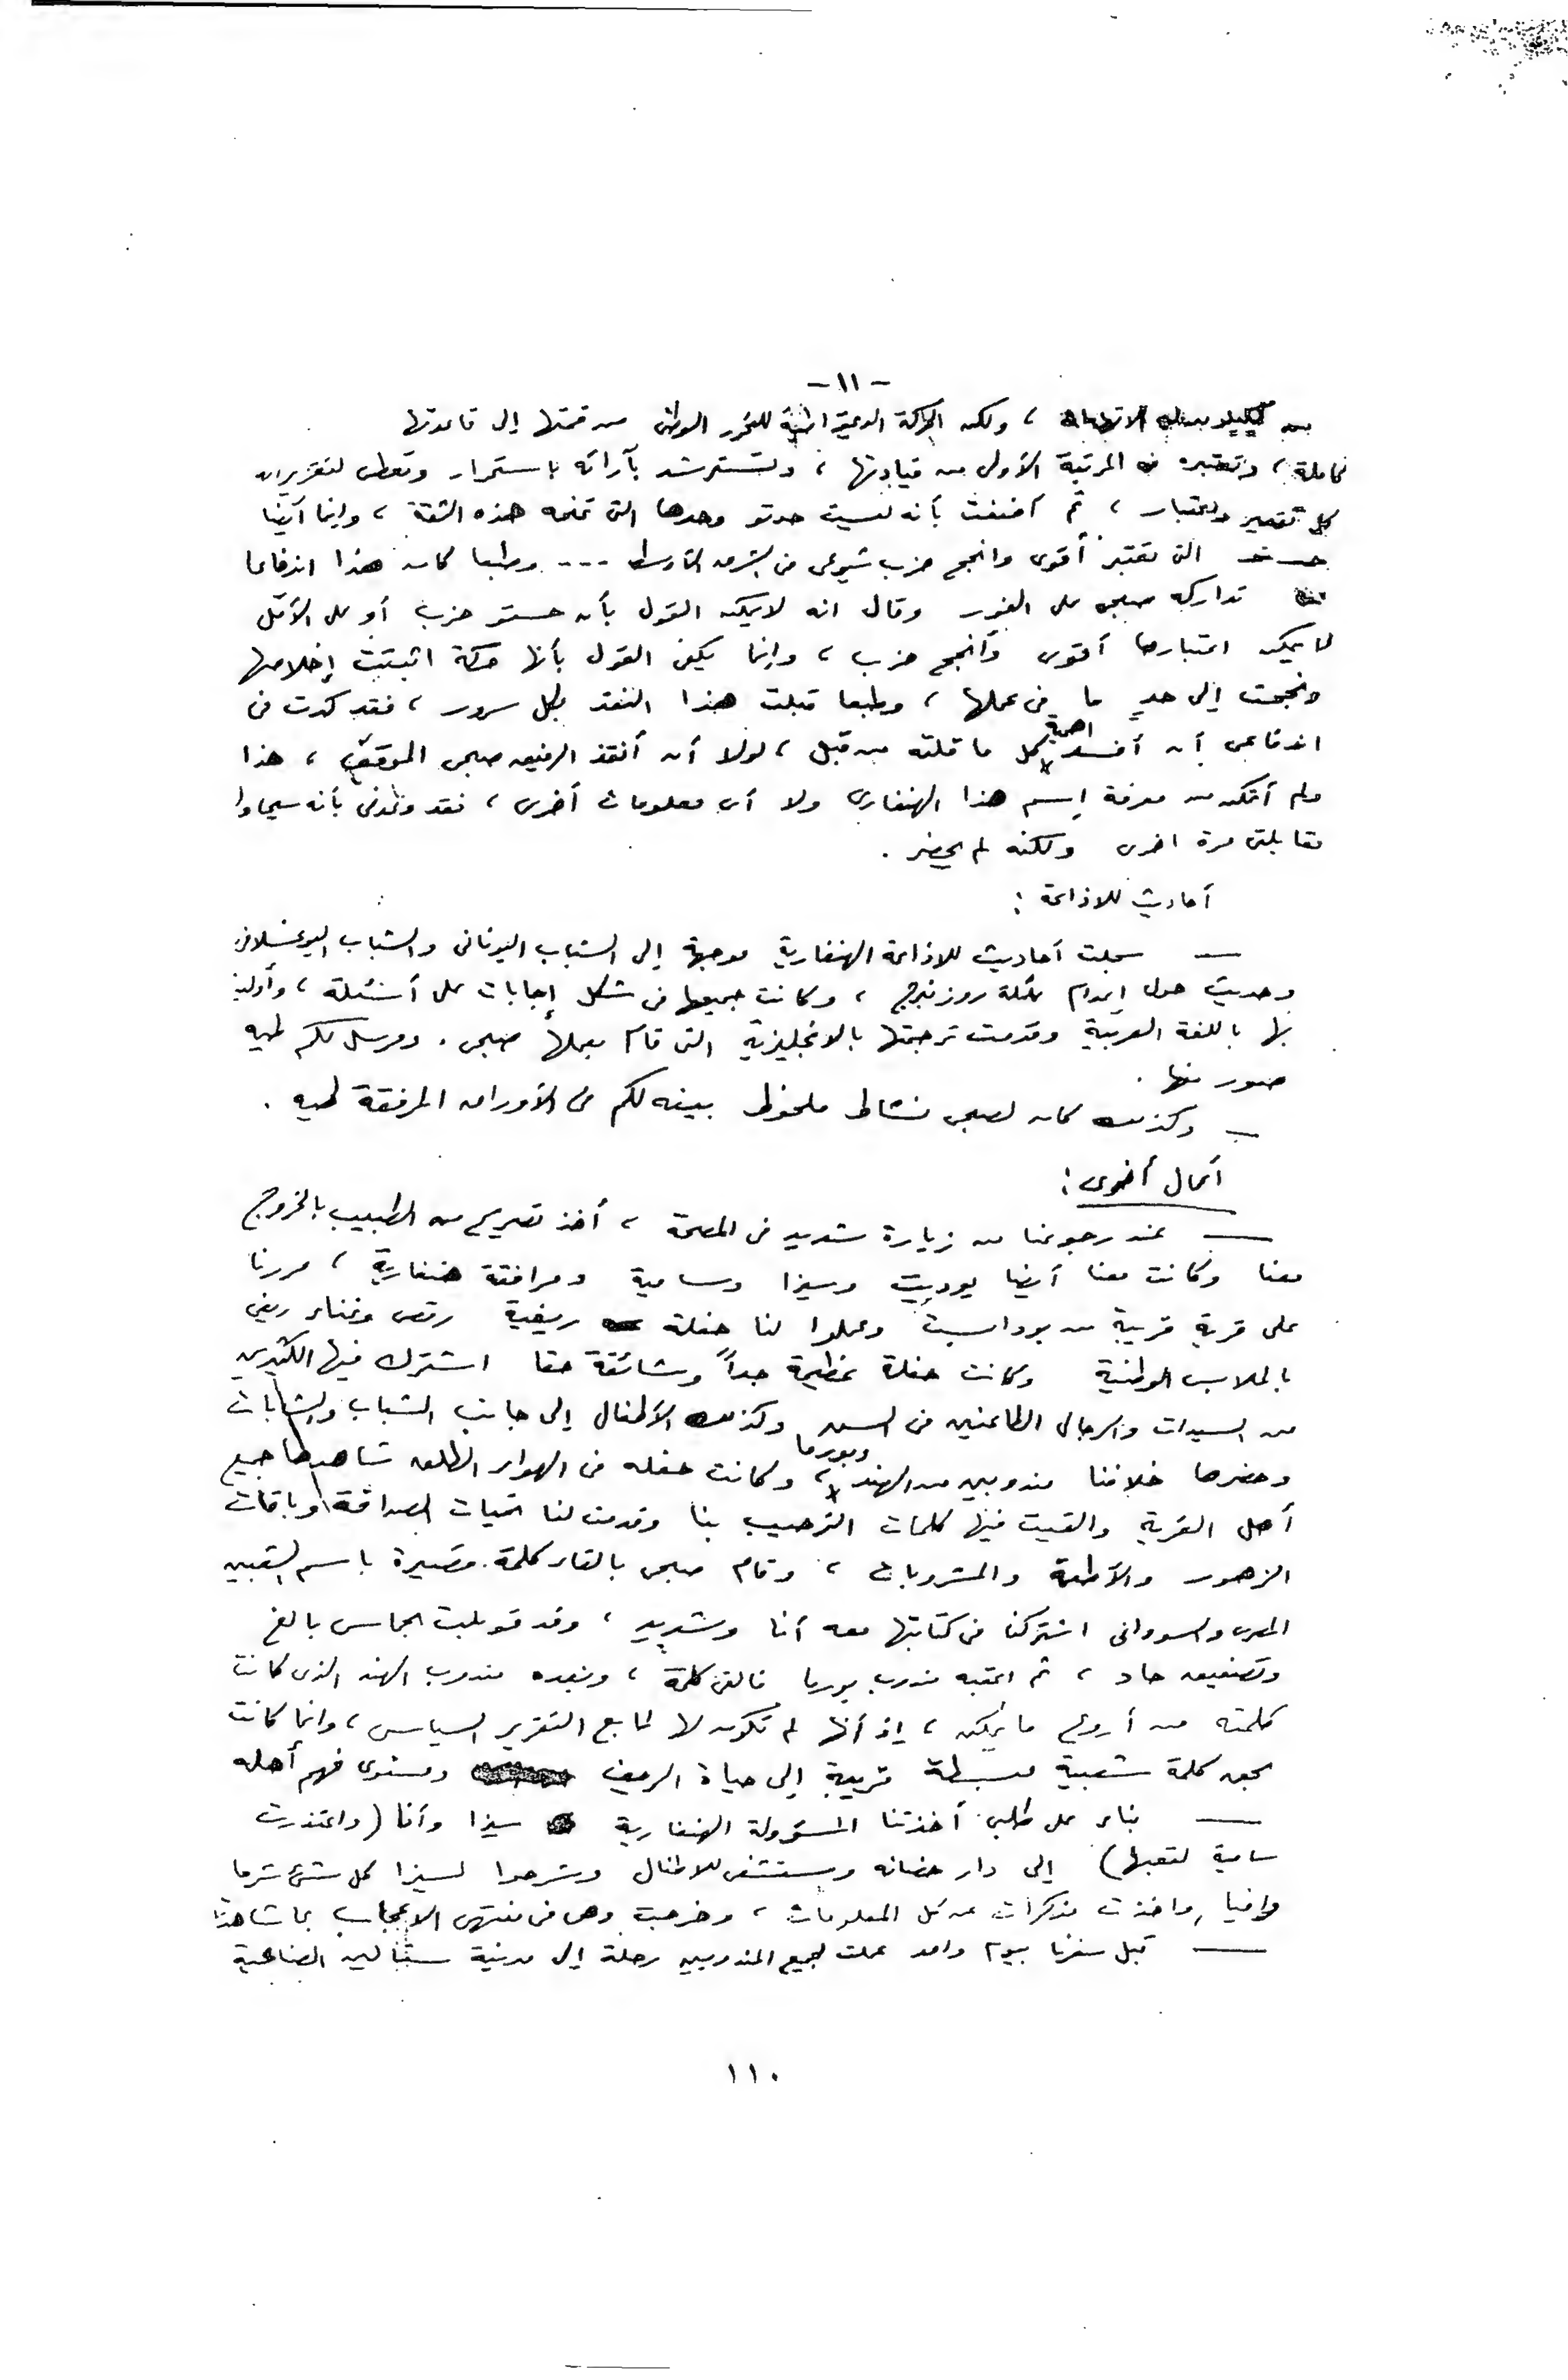 - ١١ -
، ولكن الحركة الديمقراطية للتحرر الوطنى من قمتها إلى قاعدتها
كاملة، وتعتبره فى المرتبة الأولى من قيادتها ، وتسترشد بآرائه باستمرار وتعطى لتقريراته
كل تقدير واعتبار ، ثم أضفت بأنه ليست حدتو وحدها التى تمنحه هذه الثقة ، وإنما أيضا
حستو التى تعتبر أقوى وانجح حزب شيوعى فى الشرق الأوسط --- وطبعا كان هذا اندفاعا
تداركه صبحى على الفور وقال انه لا يمكن القول بأن حستو حزب أو على الأقل
لا يمكن اعتبارها أقوى وأنجح حزب ، وإنما يكفى القول بأنها حركة اثبتت إخلاصها
ونجحت إلى حدٍ ما فى عملها ، وطبعا قبلت هذا النقد بكل سرور ، فقد كدت فى
اندفاعى أن أفسد اهمية كل ما قلته من قبل ، لولا أن أنقذ الرفيق صبحى الموقف ، هذا
ولم أتمكن من معرفة إسم هذا الهنغارى ولا أى معلومات أخرى ، فقد وعدنى بأنه سيحاول
مقابلتى مرة اخرى ولكنه لم يحضر .
أحاديث للاذاعة :
— سجلت أحاديث للاذاعة الهنغارية موجهة إلى الشباب اليونانى والشباب اليوغسلافى
وحديث حول إعدام عائلة روزنبرج ، وكانت جميعها فى شكل إجابات على أسئلة ، وأدليت
بها باللغة العربية وقدمت ترجمتها بالانجليزية التى قام بعملها صبحى . ومرسل لكم طيه
صور منها .
— وكذلك كان لصبحى نشاط ملحوظ بينه لكم فى الأوراق المرفقة طيه .
أعمال أخرى :
— عند رجوعنا من زيارة شديد فى المصحة ، أخذ تصريح من الطبيب بالخروج
معنا وكانت معنا أيضا يوديت وسيزا وسامية ومرافقة هنغارية ، مررنا
على قرية قريبة من بودابست وعملوا لنا حفلة ريفية رقص وغناء ريفى
بالملابس الوطنية وكانت حفلة عظيمة جداً وشائقة حقا اشترك فيها الكثيرين
من السيدات والرجال الطاعنين فى السن وكذلك الأطفال إلى جانب الشباب والشابات
وحضرها خلافنا مندوبين من الهند وبورما ، وكانت حفله فى الهواء الطلق شاهدها جميع
أهل القرية والقيت فيها كلمات الترحيب بنا وقدمت لنا تحيات الصداقة وباقات
الزهور والأطعمة والمشروبات ، وقام صبحى بالقاء كلمة قصيرة باسم الشعبين
المصرى والسودانى اشتركنا فى كتابتها معه أنا وشديد ، وقد قوبلت بحماس بالغ
وتصفيق حاد ، ثم اعقبه مندوب بورما فالقى كلمة ، وبعده مندوب الهند الذى كانت
كلمته من أروع ما يمكن ، إذ أنها لم تكون لها طابع التقرير السياسى ، وانما كانت
بحق كلمة شعبية مبسطة قريبة إلى حياة الريف ومستوى فهم أهله
— بناء على طلبى أخذتنا المسؤولة الهنغارية سيزا وأنا (واعتذرت
سامية لتعبها) إلى دار حضانه ومستشفى للاطفال وشرحوا لسيزا كل شئ شرحا
وافيا، واخذت مذكرات عن كل المعلومات ، وخرجت وهى فى منتهى الاعجاب بما شاهدنا
— قبل سفرنا بيوم واحد عملت لجميع المندوبين رحلة إلى مدينة ستالين الصناعية
١١٠